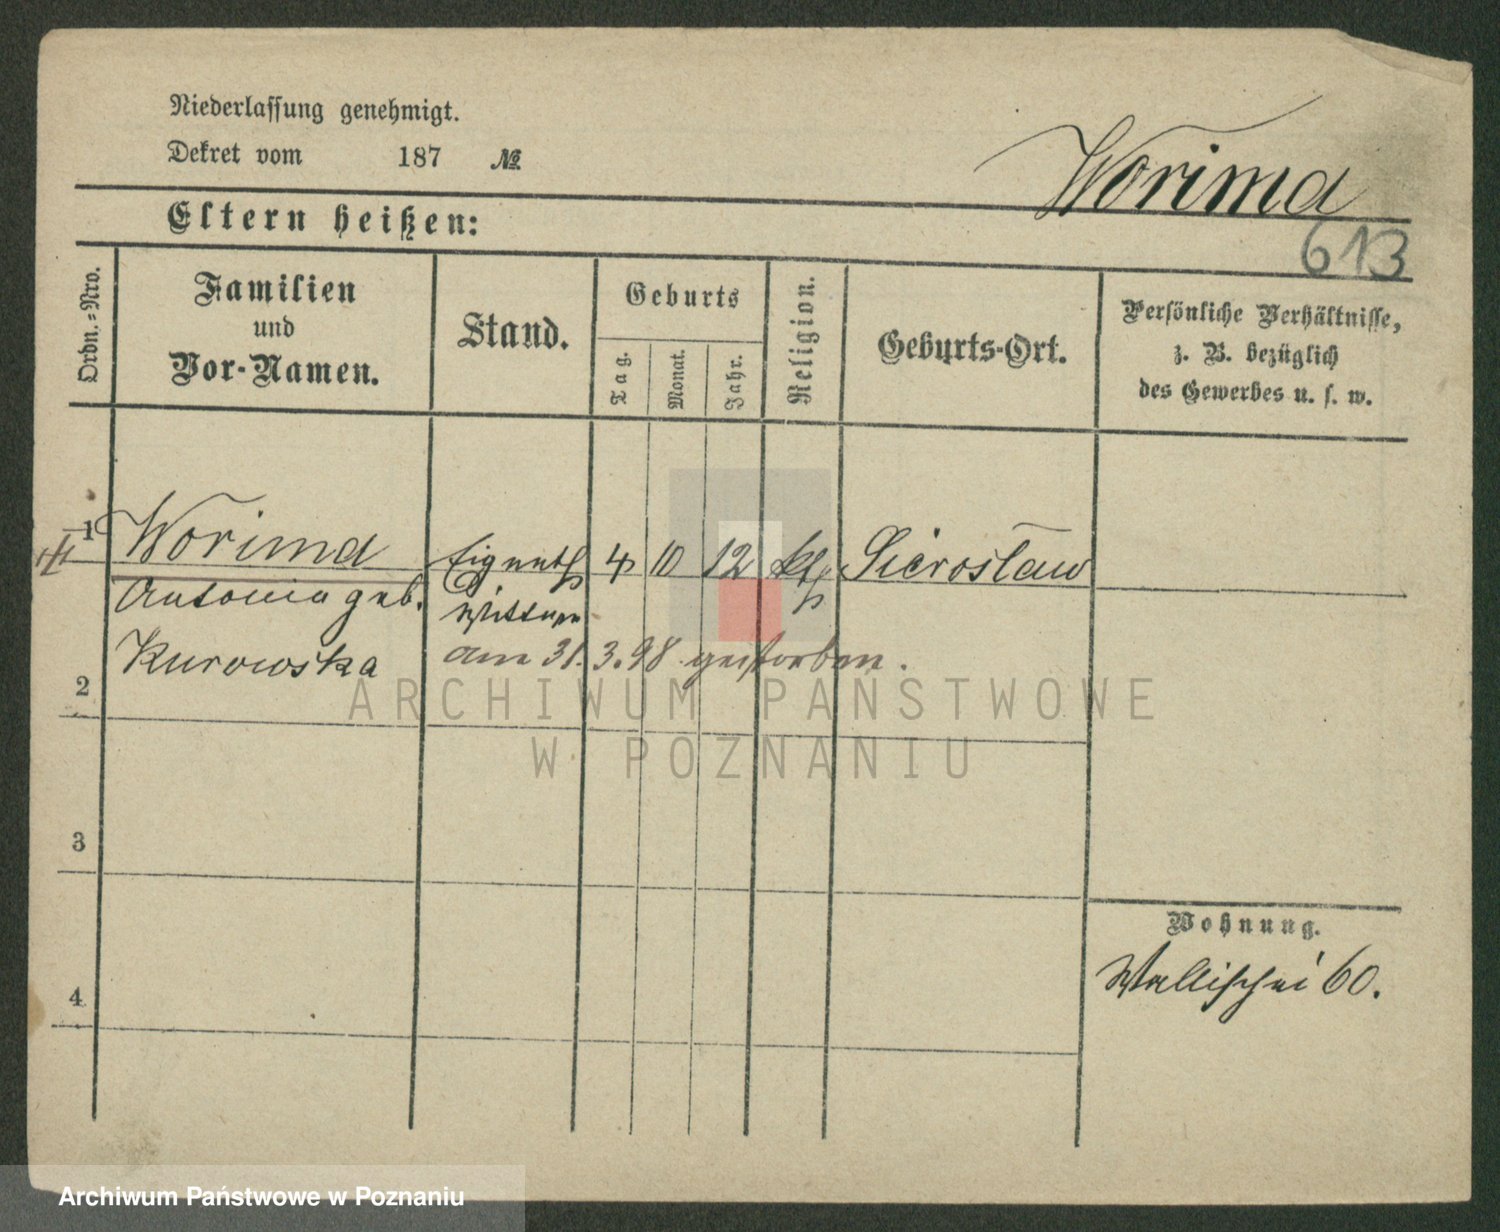 Niederlassung genehmigt.
Dekret vom 187 №
Worima
Eltern heißen:
613
Ordn.-Nro.
Familien
und
Vor-Namen.
Stand.
Geburts
Tag.
Monat.
Jahr.
Religion.
Geburts-Ort.
Persönliche Verhältnisse,
z. B. bezüglich
des Gewerbes u. s. w.
1 Worima 4 10 12 kth Sierosław
Antonia geb. Wittwe
Kurowska am 31.3.98 gestorben.
2
3
4
Wohnung.
Wallischei 60.
ARCHIWUM PAŃSTWOWE
W POZNANIU
Archiwum Państwowe w Poznaniu